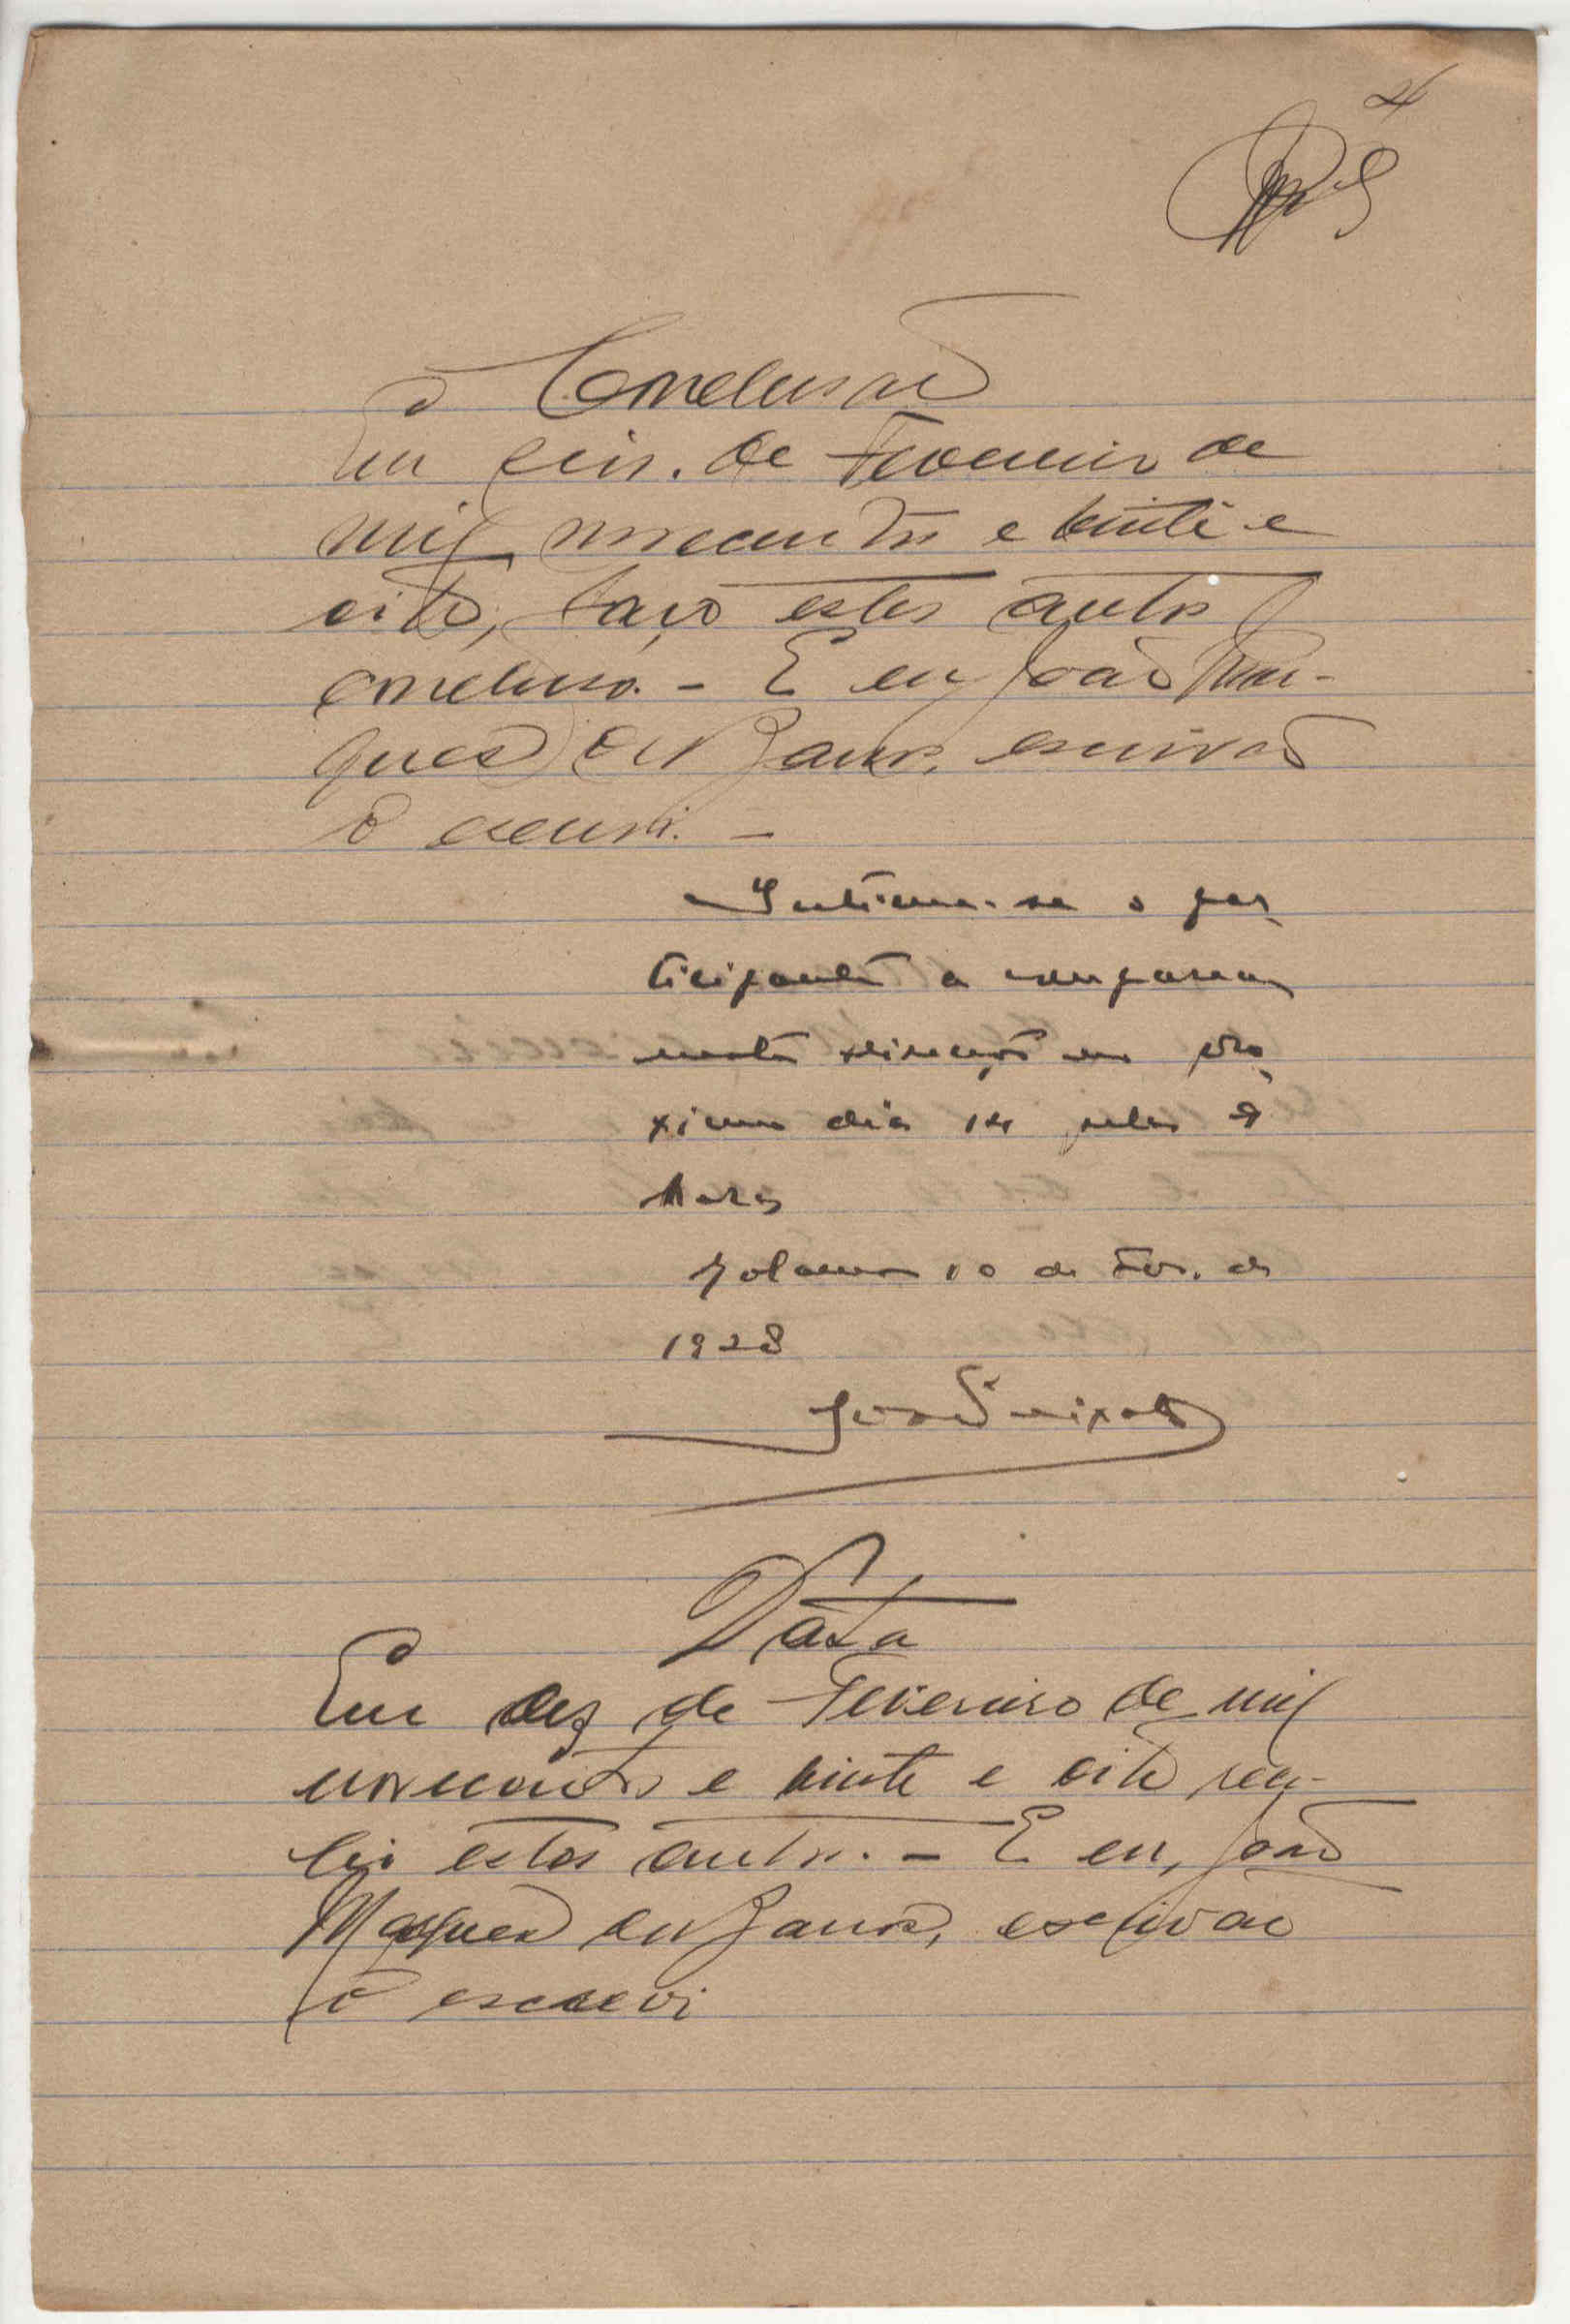 4
Conclusão
Em seis de Fevereiro de
mil novecentos e vinte e
oito, faço estes autos
conclusos. - E eu João Mar-
ques dos Santos, escrivão
o escrevi. -
Intime-se o par-
ticipante a comparecer
nesta direcção no pro-
ximo dia 14 pelas
horas
10 de Fev. de
1928
João Peixoto
Data
Em dez de Fevereiro de mil
novecentos e vinte e oito rece-
bi estes autos. - E eu, João
Marques dos Santos, escrivão
o escrevi